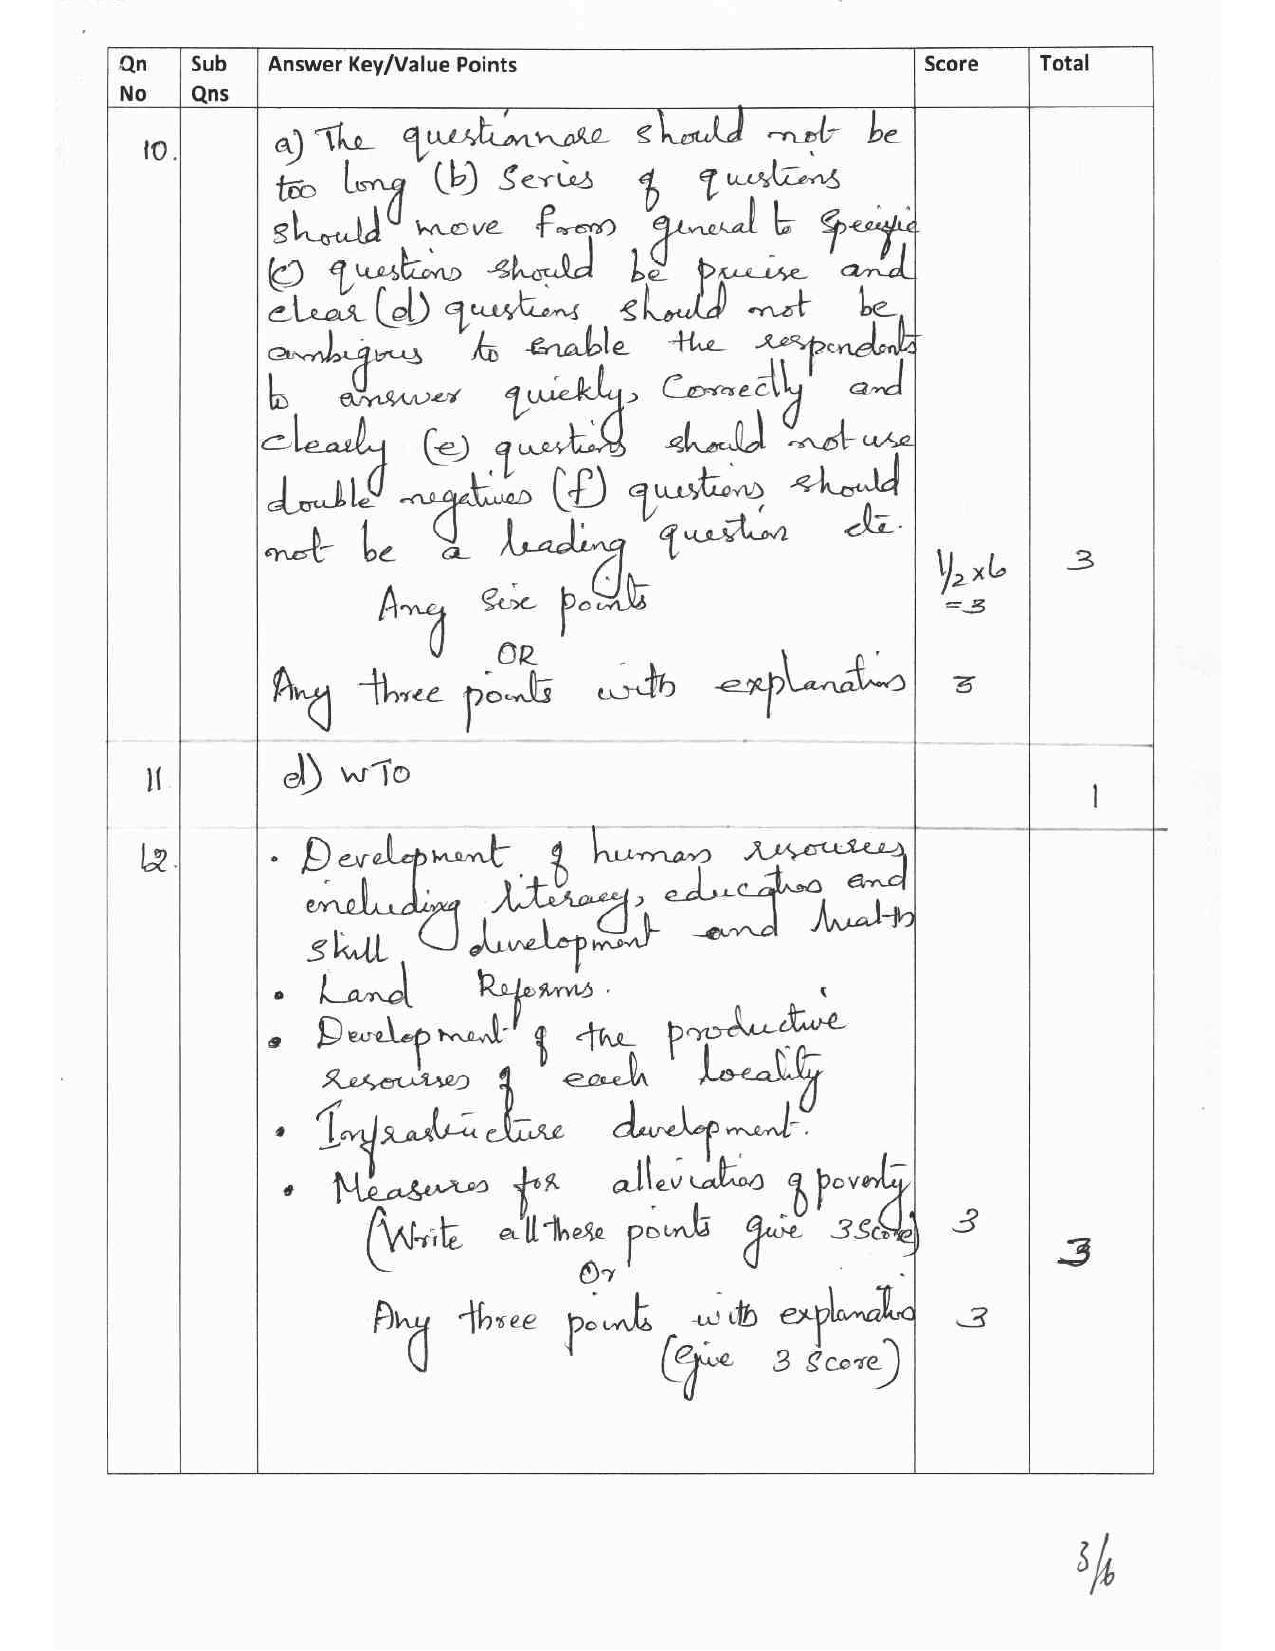 Qn Sub Answer Key/Value Points Score Total
No Qns
10. a) The questionnare should not be
too long (b) Series of questions
should move from general to specific
(c) questions should be precise and
clear (d) questions should not be
ambigous to enable the respondents
to answer quickly, Correctly and
clearly (e) questions should not use
double negatives (f) questions should
not be a leading question etc.
1/2 x 6 3
Any six points = 3
OR
Any three points with explanation 3
11. d) WTO
1
12. • Development of human resources
including literacy, education and
skill development and health
• Land Reforms.
• Development of the productive
resourses of each locality
• Infrastructure development.
• Measures for alleviation of poverty
(Write all these points give 3 Score) 3
3
Or
Any three points with explanation 3
(Give 3 Score)
3/6